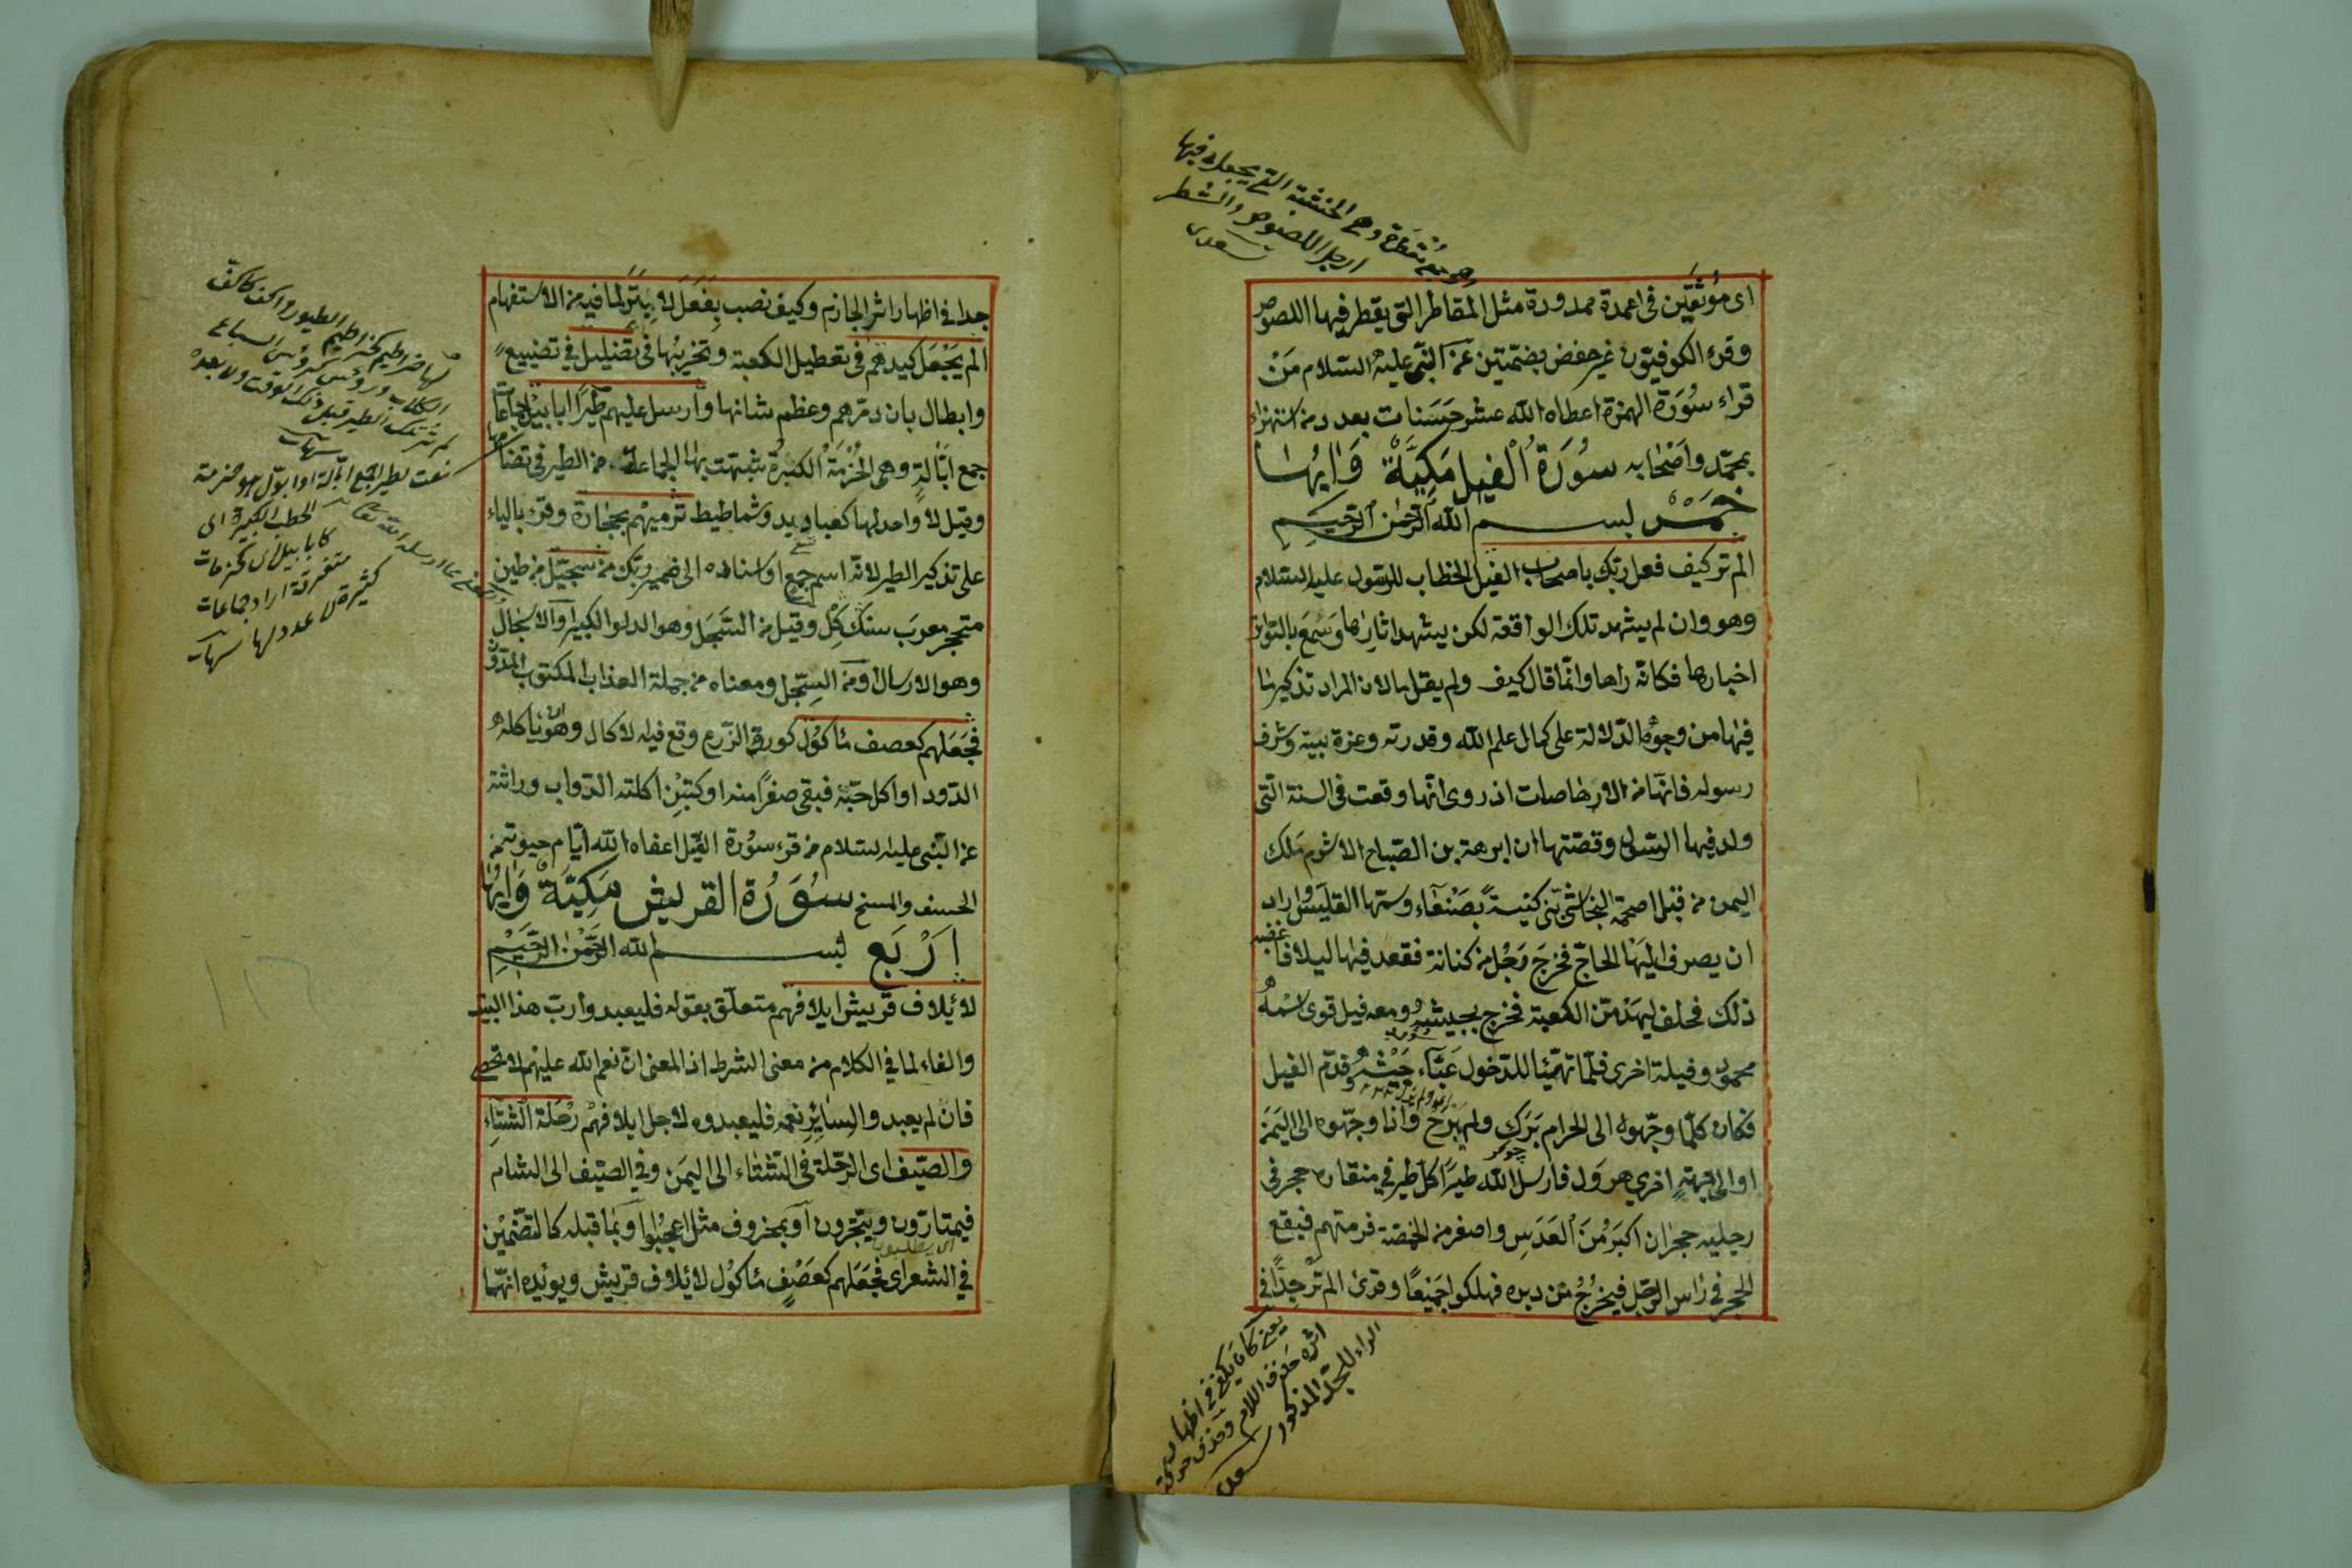 وهو جمع مقطرة وهي الخشبة التي يجعل فيها
ارجل اللصوص والشطر
سعدى
اى موثقين فى اعمدة ممدودة مثل المقاطر التى يقطر فيها اللصوص
وقرء الكوفيون غير حفص بضمتين عن النبى عليه السلام مَنْ
قراء سُورَة الهمزة اعطاه الله عشر حَسَنات بعدد من استهزاء
بمحمّد واَصْحابه سُورَة الْفيل مَكِيَّة وَايهَا
خَمسْ بســـم الله الرحمن الرحيم
الم تر كيف فعل ربك باصحاب الفيل الخطاب للرسول عليه السلام
وهو وان لم يشهد تلك الواقعة لكن يشهد اثارها وسَمِعَ بالتواتر
اخبارها فكانه راها وانما قال كيف ولم يقل ما لان المراد تذكير ما
فيها من وجوه الدّلالة على كمال علم الله وقدرته وعزة بيته وشرف
رسوله فانها من الارهاصات اذ روى انها وقعت فى السنة التى
ولد فيها الرسول وقصتها ان ابرهة بن الصّباح الاشرم ملك
اليمن من قبل اصحمة النجاشى بنى كنيسةً بصَنْعَاء وسمّها القليس واراد
ان يصرف اليْهَا الحاجّ فخرجَ رَجُل من كنانة فقعد فيها ليلا فاغضبه
ذلك فحلف ليهدمنّ الكعبة فخرج بجيشه ومعه فيل قوى اسْمُهُ
محمود وفيلة اخرى فلمّا تهيّئا للدّخول عَبَّاء جَيْشه وقدّم الفيل
فكان كلّما وجّهوه الى الحرام بَرَك ولم يَبْرَح واذا وجّهوه الى اليَمَن
او الى جهةٍ اخرى هروَل فارسل الله طيرًا كل طير فى منقاره حجر فى
رجليه حجران اكبَر مُنَ العَدَسِ واصغر من الحمّصة فرمتهم فيقع
الحجر فى رَاس الرجل فيخرُجُ من دبره فهلكوا جَميعًا وقرئ الم تر جدًّا فى
جدا فى اظهار اثر الجازم وكيف نصب بفَعَلَ لا بِتَر لما فيه من الاستفهام
الم يَجْعَل كيدهم فى تعطيل الكعبة وتخريبها فى تضليل فى تضييع
وابطال بان دمّرهم وعظم شانها وارسل عليهم طيرًا ابابيْل جماعات
جمع ابّالةٍ وهى الحُزْمَة الكبيرُة شبهت بها الجماعة من الطير فى تضامها
وقيل لا واحد لها كعباديد وشماطيط ترميهم بحجَارة وقرئ بالياء
على تذكير الطير لانّه اسم جمع او اسناده الى ضمير ربّك من سجّيل من طين
متحجر معربَ سنك كِل وقيل من السَّجَل وهو الدلو الكبير او الاسجال
وهو الارسال او من السِجّل ومعناه من جملة العذاب المكتوب المدوّن
فجَعَلهم كعصف مَاكوُل كورق الزّرع وقع فيه الاكال وهو ان ياكله
الدّود او اكل حبّه فبقى صفرًا منه او كتبْن اكلته الدّواب وراثته
عن النّبى عليه السلام من قرء سوُرة الفيل اعفاه الله ايّام حيوته من
الخسف والمسخ سُوَرُة القريش مَكِيَّة وَايهَا
اَرْبَع بســـم الله الرَّحمْن الرَّحِيْمِ
لائيلاف قريش ايلافهم متعلّق بقوله فليعبدوا ربّ هذا البيت
والفاء لما فى الكلام من معنى الشرط اذ المعنى انّ نعم الله عليهم لا تحصى
فان لم يعبدوا لسائر نعمه فليعبدوه لاجل ايلافهمْ رحْلَة الشتَاءِ
والصّيف اى الرّحلة فى الشّتاء الى اليَمَن وفى الصّيف الى الشام
فيمتارّون ويتجرون او بمحذوف مثل اعجبُوا او بمَا قبله كالتّضْميْن
فى الشعر اى فجَعَلهم كعَصْفٍ مَاكوُل لائيلاف قريش ويويّده انّهما
لها خراطيم كخراطيم الطيور واكف كاكف
الكلاب ورؤس كرؤس السباع
لم تر تلك الطير قبل ذلك الوقت ولا بعده
نعت لطير جمع ابّالة او ابّول هو حزمة
الحطب الكبيرة اى
متفرقة اراد جماعات
يعنى كان يكفى فى اظهار
الراء للجدّ المذكور
سعدى